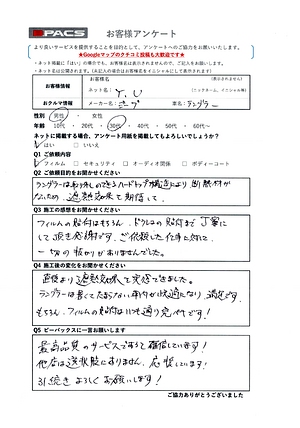 PACS お客様アンケート
より良いサービスを提供することを目的として、アンケートへのご協力をお願いいたします。
★Googleマップのクチコミ投稿も大歓迎です★
・ネット掲載に「はい」の場合でも、お客様名は表示されませんので、ご記入をお願いします。
・ネット名は公開されます。(未記入の場合はお客様名をイニシャルにして表示されます)
お客様情報
お客様名: (表示されません)
ネット名: Y.U (ニックネーム、イニシャル等)
おクルマ情報
メーカー名: ジープ 車名: ラングラー
性別 男性 ・ 女性
年齢 10代 ・ 20代 ・ 30代 ・ 40代 ・ 50代 ・ 60代～
ネットに掲載する場合、アンケート用紙を掲載してもよろしいでしょうか?
はい □いいえ
Q1 ご依頼内容
フィルム □セキュリティ □オーディオ関係 □ボディーコート
Q2 ご依頼目的をお聞かせください
ラングラーは取り外しのできるハードトップ構造により断熱材が
ないため、遮熱効果を期待して。
Q3 施工の感想をお聞かせください
フィルムの貼付はもちろん、
丁寧に
して頂き感謝です。ご依頼した仕事に対して
一切の抜かりがありませんでした。
Q4 施工後の変化をお聞かせください
直後より遮熱効果を実感できました。
ラングラーは暑くてたまらない車内が快適になり、満足です。
もちろん、フィルムの貼付はいつも通り完ぺきです!
Q5 ピーパックスに一言お願いします
最高品質のサービスですと確信しています!
他店は選択肢にありません。応援しています!
引き続きよろしくお願いします!
ご協力ありがとうございました